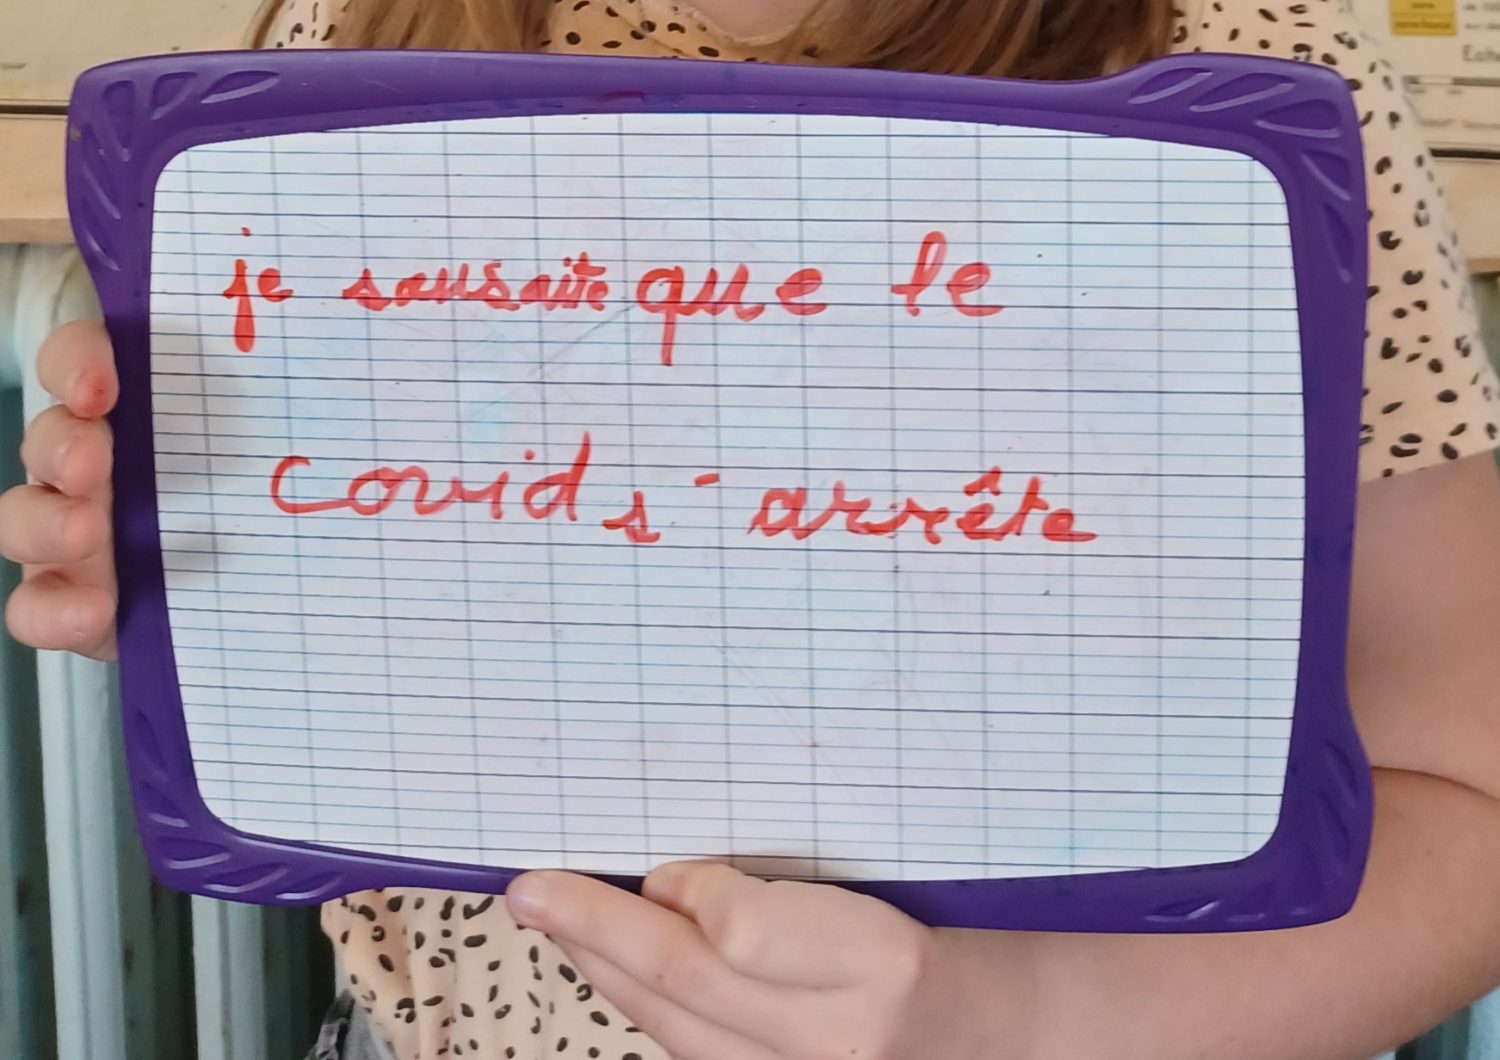 je sausaite que le
covid s'arrête